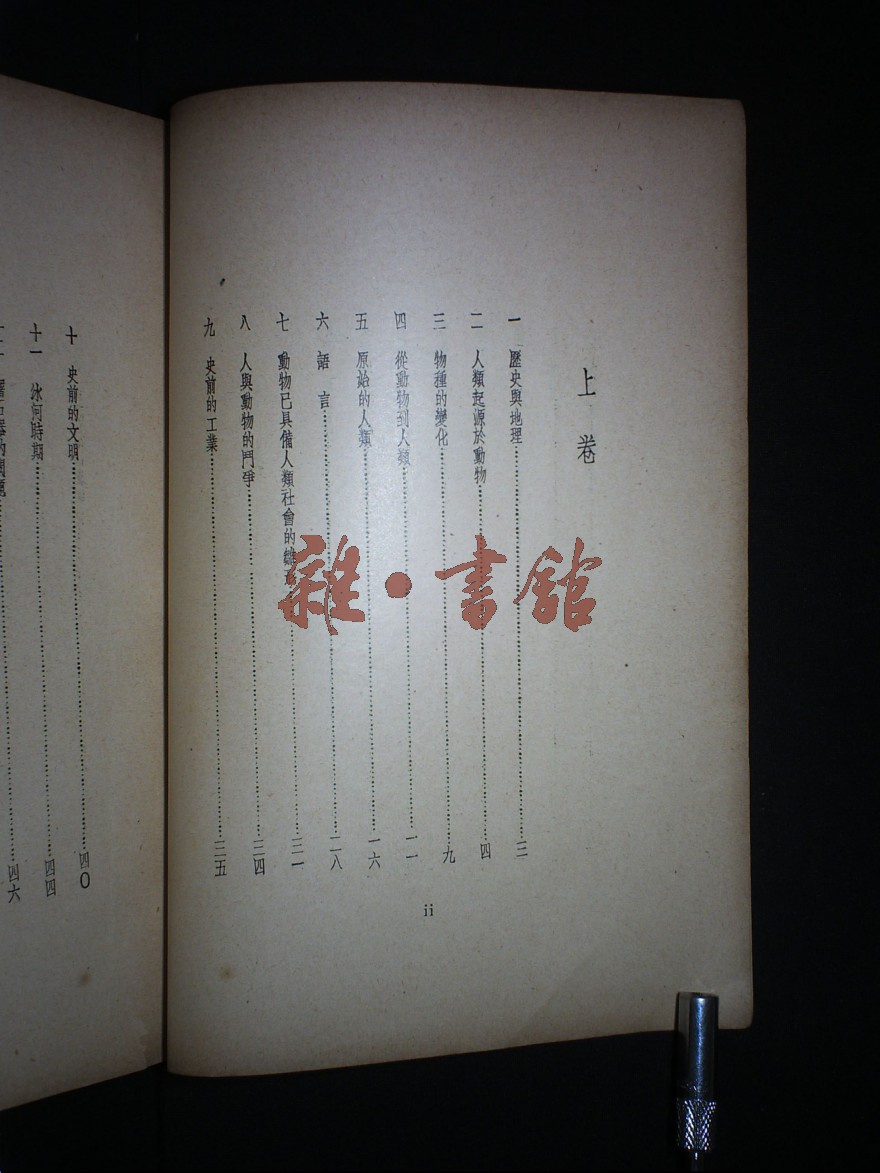 上卷
一 歷史與地理……三
二 人類起源於動物……四
三 物種的變化……九
四 從動物到人類……一一
五 原始的人類……一六
六 語言……二八
七 動物已具備人類社會的雛……三一
八 人與動物的鬥爭……三四
九 史前的工業……三五
ii
十 史前的文明……四〇
十一 冰河時期……四四
四六
雜·書館